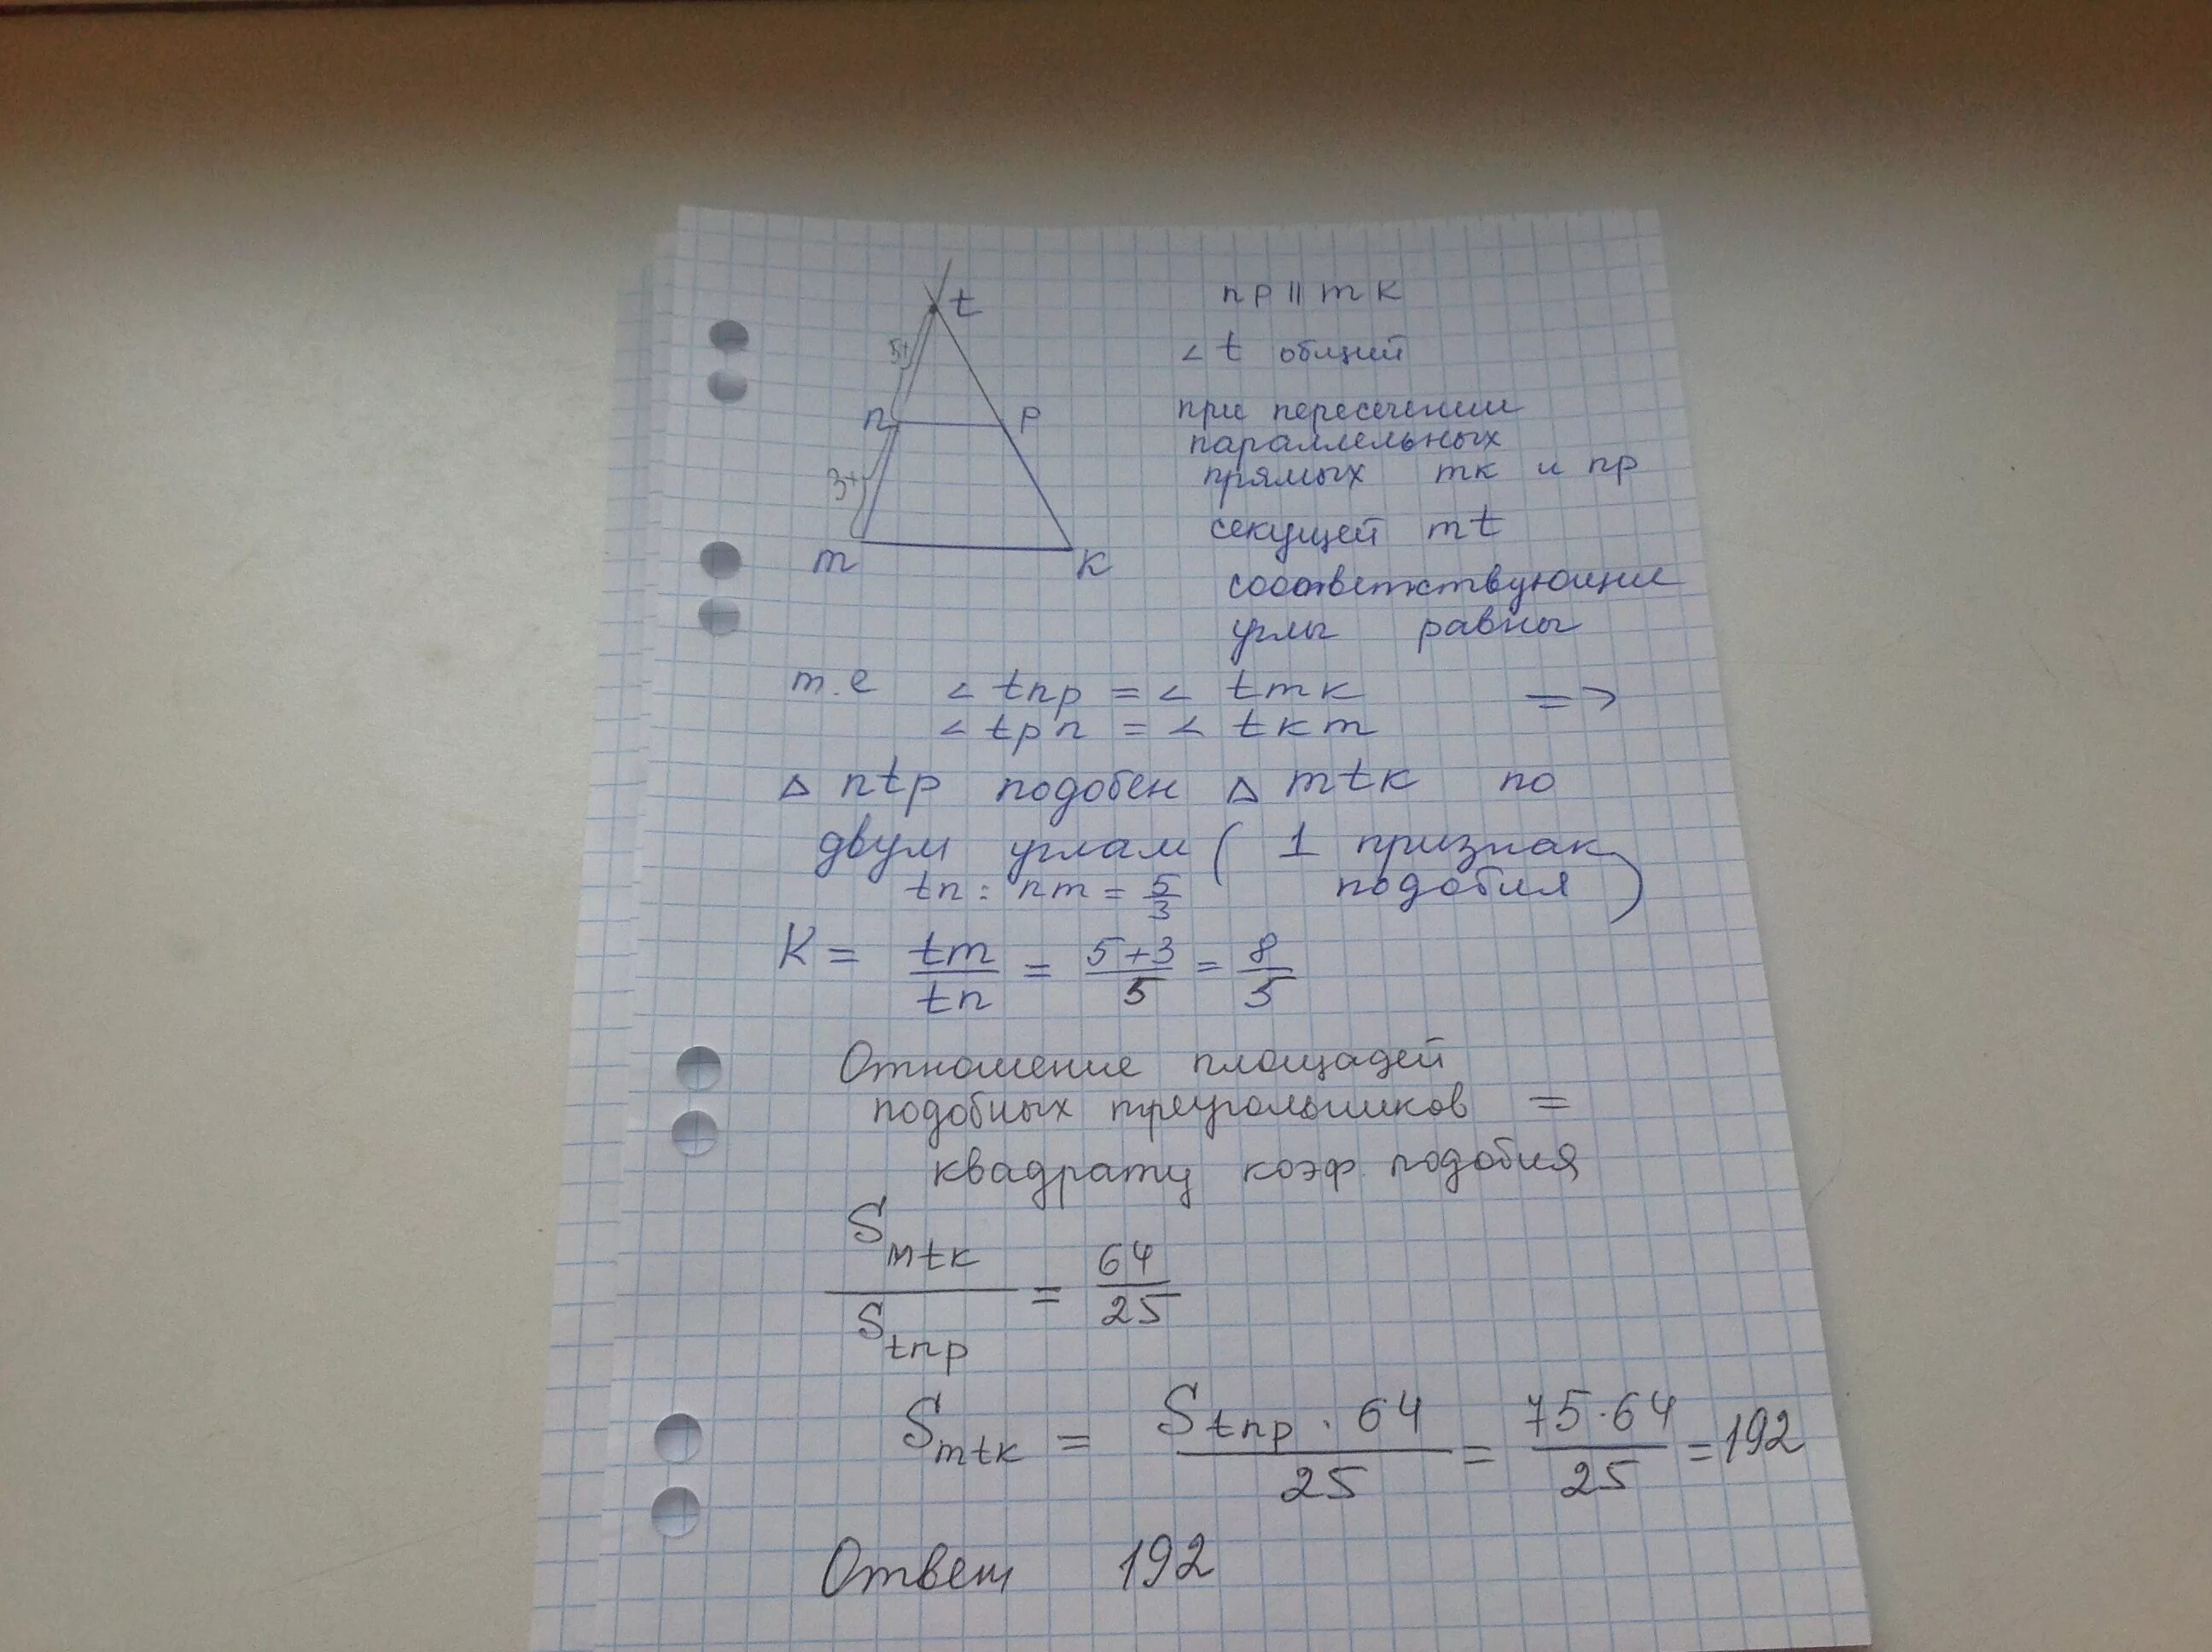 t
5+
n
p
3+
m
k
np || mk
∠ t общий
при пересечении
параллельных
прямых mk и np
секущей mt
соответствующие
углы равны
т.е ∠ tnp = ∠ tmk =>
∠ tpn = ∠ tkm
△ ntp подобен △ mtk по
двум углам ( 1 признак
подобия )
tn : nm = 5/3
K = tm/tn = 5+3/5 = 8/5
Отношение площадей
подобных треугольников =
квадрату коэф. подобия
S mtk / S tnp = 64/25
S mtk = S tnp · 64 / 25 = 75·64 / 25 = 192
Ответ 192